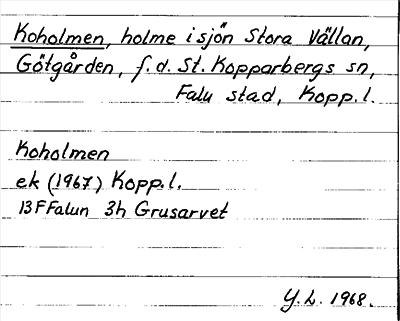 Koholmen, holme i sjön Stora Vällan,
Götgården, f.d. St. Kopparbergs sn,
Falu stad, Kopp.l.
Koholmen
ek (1967) Kopp.l.
13F Falun 3h Grusarvet
Y.L. 1968.